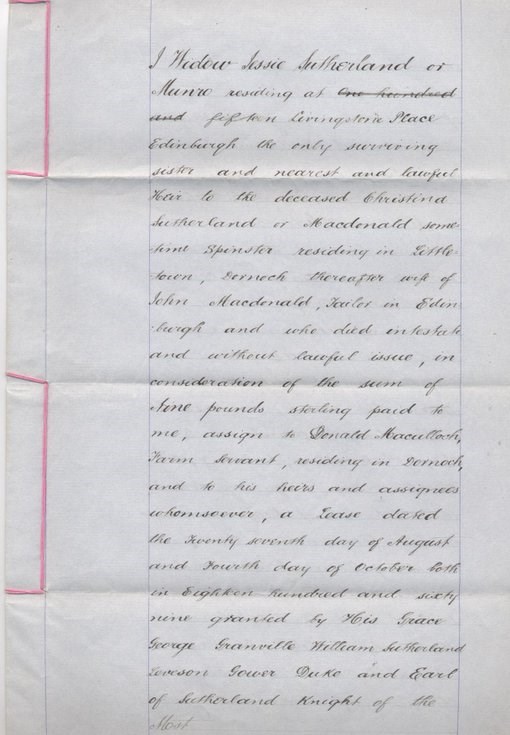 I Widow Jessie Sutherland or
Munro residing at One hundred
and fifteen Livingstone Place
Edinburgh the only surviving
sister and nearest and lawful
Heir to the deceased Christina
Sutherland or Macdonald some-
-time Spinster residing in Little-
-town, Dornoch thereafter wife of
John Macdonald, Tailor in Edin
-burgh and who died intestate
and without lawful issue, in
consideration of the sum of
Nine pounds sterling paid to
me, assign to Donald Maculloch,
Farm Servant, residing in Dornoch,
and to his heirs and assignees
whomsoever, a Lease dated
the Twenty seventh day of August
and Fourth day of October both
in Eighteen hundred and sixty
nine granted by His Grace
George Granville William Sutherland
Leveson Gower Duke and Earl
of Sutherland Knight of the
Most